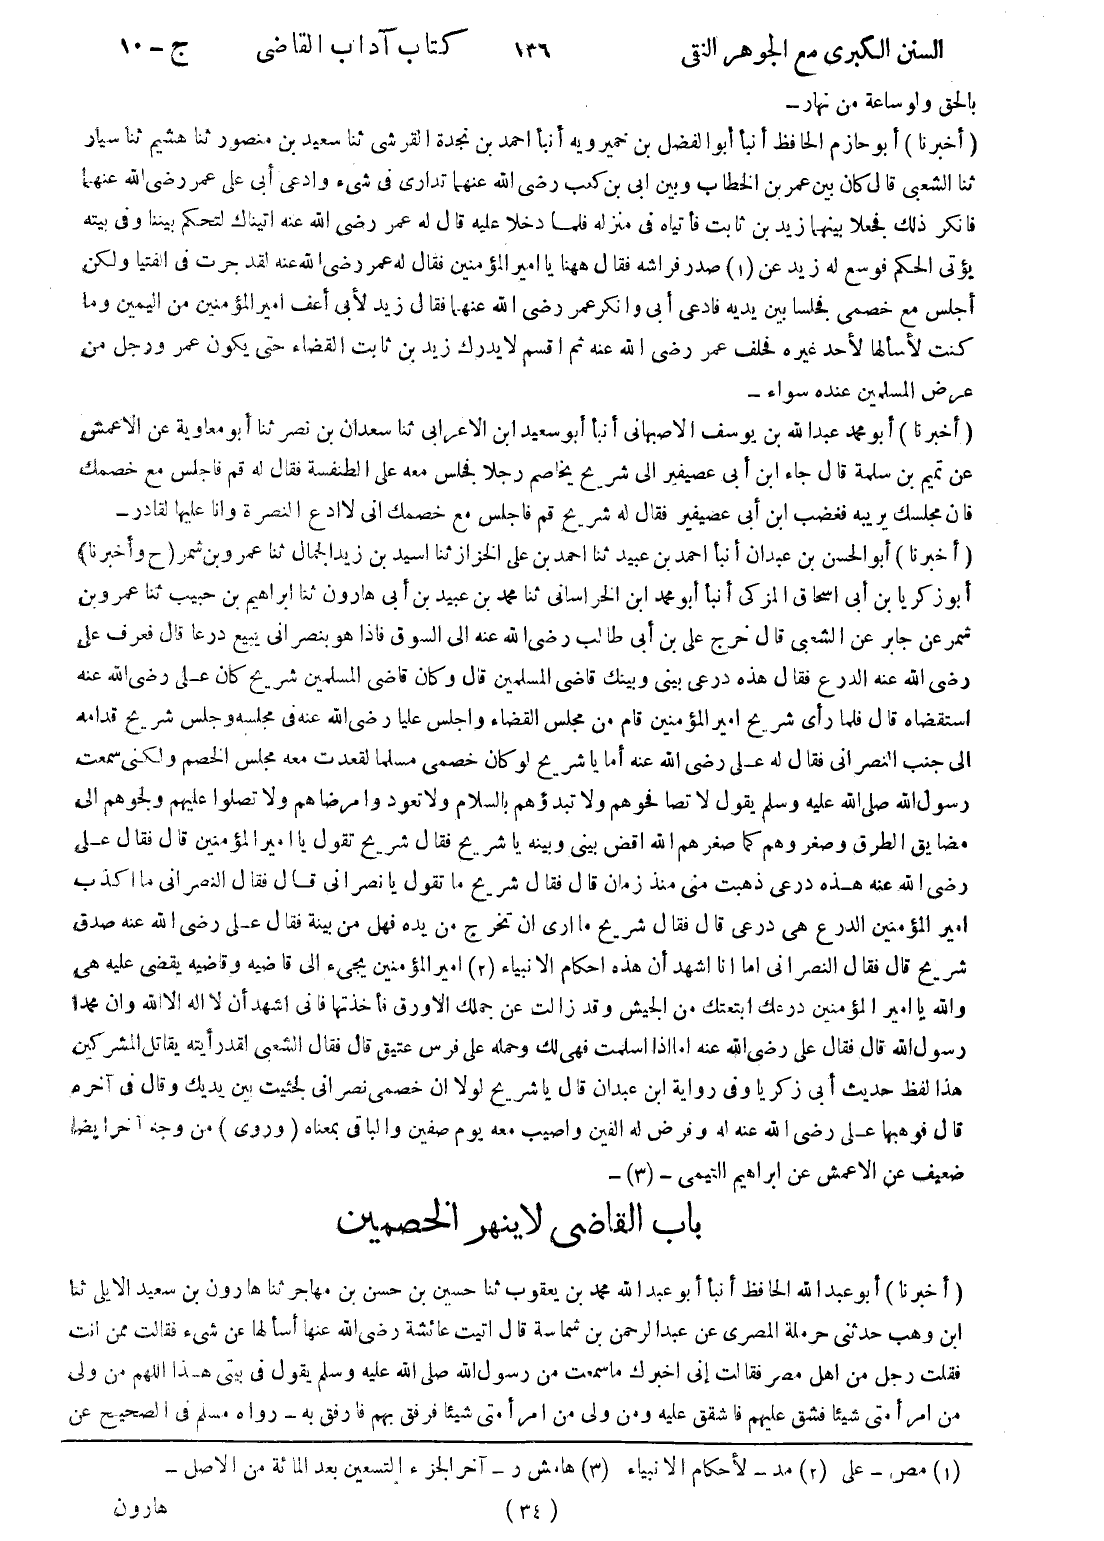 السنن الكبرى مع الجوهر النقى ١٣٦ كتاب آداب القاضى ج - ١٠
بالحق ولو ساعة من نهار -
( أخبرنا ) أبو حازم الحافظ أنبأ أبو الفضل بن خميرويه أنبأ احمد بن نجدة القرشى ثنا سعيد بن منصور ثنا هشيم ثنا سيار
ثنا الشعبى قال كان بين عمر بن الخطاب وبين ابى بن كعب رضى الله عنهما تدارى فى شىء وادعى أبى على عمر رضى الله عنهما
فانكر ذلك فجعلا بينهما زيد بن ثابت فأتياه فى منزله فلما دخلا عليه قال له عمر رضى الله عنه اتيناك لتحكم بيننا وفى بيته
يؤتى الحكم فوسع له زيد عن (١) صدر فراشه فقال ههنا يا امير المؤمنين فقال له عمر رضى الله عنه لقد جرت فى الفتيا ولكن
أجلس مع خصمى فجلسا بين يديه فادعى أبى وانكر عمر رضى الله عنهما فقال زيد لأبى أعف امير المؤمنين من اليمين وما
كنت لأسألها لأحد غيره فحلف عمر رضى الله عنه ثم اقسم لا يدرك زيد بن ثابت القضاء حتى يكون عمر ورجل من
عرض المسلمين عنده سواء -
( أخبرنا ) أبو محمد عبدالله بن يوسف الاصبهانى أنبأ أبو سعيد ابن الاعرابى ثنا سعدان بن نصر ثنا أبو معاوية عن الاعمش
عن تميم بن سلمة قال جاء ابن أبى عصيفير الى شريح يخاصم رجلا فجلس معه على الطنفسة فقال له قم فاجلس مع خصمك
فان مجلسك يريبه فغضب ابن أبى عصيفير فقال له شريح قم فاجلس مع خصمك انى لا ادع النصرة وانا عليها لقادر -
( أخبرنا ) أبو الحسن بن عبدان أنبأ احمد بن عبيد ثنا احمد بن على الخزاز ثنا اسيد بن زيد الجمال ثنا عمرو بن شمر ( ح وأخبرنا)
أبو زكريا بن أبى اسحاق المزكى أنبأ أبو محمد ابن الخراسانى ثنا محمد بن عبيد بن أبى هارون ثنا ابراهيم بن حبيب ثنا عمرو بن
شمر عن جابر عن الشعبى قال خرج على بن أبى طالب رضى الله عنه الى السوق فاذا هو بنصرانى يبيع درعا قال فعرف على
رضى الله عنه الدرع فقال هذه درعى بينى وبينك قاضى المسلمين قال وكان قاضى المسلمين شريح كان على رضى الله عنه
استقضاه قال فلما رأى شريح امير المؤمنين قام من مجلس القضاء واجلس عليا رضى الله عنه فى مجلسه وجلس شريح قدامه
الى جنب النصرانى فقال له على رضى الله عنه أما يا شريح لو كان خصمى مسلما لقعدت معه مجلس الخصم ولكنى سمعت
رسول الله صلى الله عليه وسلم يقول لا تصافحوهم ولا تبدؤهم بالسلام ولا تعودوا مرضاهم ولا تصلوا عليهم ولجوهم الى
مضايق الطرق وصغروهم كما صغرهم الله اقض بينى وبينه يا شريح فقال شريح تقول يا امير المؤمنين قال فقال على
رضى الله عنه هذه درعى ذهبت منى منذ زمان قال فقال شريح ما تقول يا نصرانى قال فقال النصرانى ما اكذب
امير المؤمنين الدرع هى درعى قال فقال شريح ما ارى ان تخرج من يده فهل من بينة فقال على رضى الله عنه صدق
شريح قال فقال النصرانى اما انا اشهد أن هذه احكام الانبياء (٢) امير المؤمنين يجىء الى قاضيه وقاضيه يقضى عليه هى
والله يا امير المؤمنين درعك ابتعتك من الجيش وقد زالت عن جملك الاورق فأخذتها فانى اشهد أن لا اله الا الله وان محمدا
رسول الله قال فقال على رضى الله عنه اما اذا اسلمت فهى لك وحمله على فرس عتيق قال فقال الشعبى لقد رأيته يقاتل المشركين
هذا لفظ حديث أبى زكريا وفى رواية ابن عبدان قال يا شريح لولا ان خصمى نصرانى لجثيت بين يديك وقال فى آخره
قال فوهبها على رضى الله عنه له وفرض له الفين واصيب معه يوم صفين والباقى بمعناه ( وروى ) من وجه آخر ايضا
ضعيف عن الاعمش عن ابراهيم التيمى - (٣) -
باب القاضى لا ينهر الخصمين
( أخبرنا ) أبو عبد الله الحافظ أنبأ أبو عبدالله محمد بن يعقوب ثنا حسين بن حسن بن مهاجر ثنا هارون بن سعيد الايلى ثنا
ابن وهب حدثنى حرملة المصرى عن عبدالرحمن بن شماسة قال اتيت عائشة رضى الله عنها أسألها عن شىء فقالت ممن انت
فقلت رجل من اهل مصر فقالت إنى اخبرك ما سمعت من رسول الله صلى الله عليه وسلم يقول فى بيتى هذا اللهم من ولى
من امر أمتى شيئا فشق عليهم فاشقق عليه ومن ولى من امر أمتى شيئا فرفق بهم فارفق به - رواه مسلم فى الصحيح عن
(١) مصر - على (٢) مد - لأحكام الانبياء (٣) هامش ر - آخر الجزء التسعين بعد المائة من الاصل -
( ٣٤ ) هارون